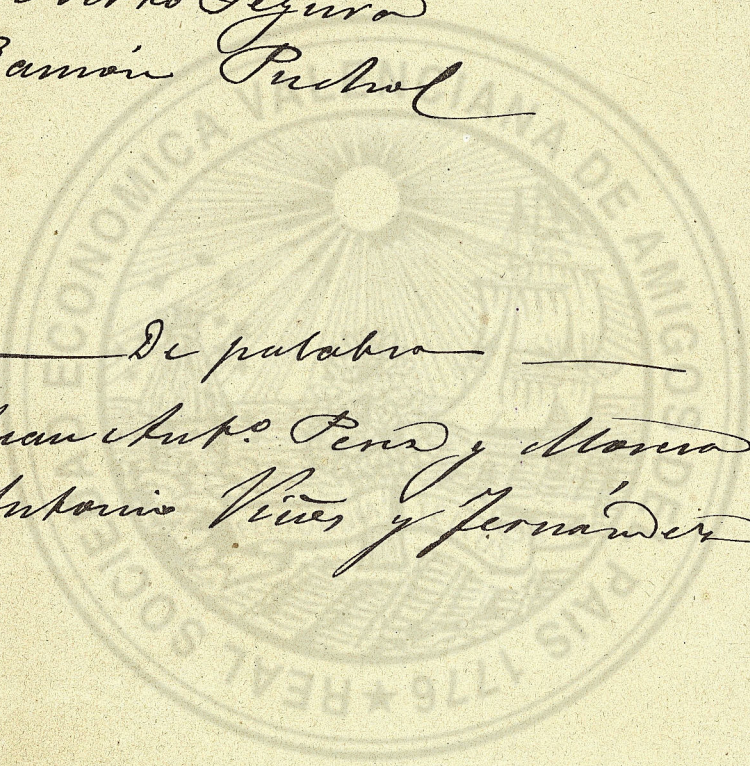 Segura
Ramón Puchol
De palabra
Juan Antº. Perez y Morera
Antonio Viñes y Fernández
REAL SOCIEDAD ECONOMICA VALENCIANA DE AMIGOS DEL PAIS 1776 ★